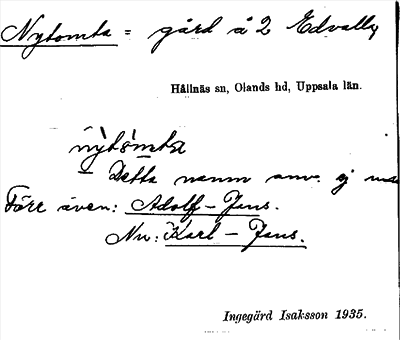 Nytomta = gård å 2 Edvalla
Hållnäs sn, Olands hd, Uppsala län.
nỳtòmta
— Detta namn anv. ej
Förr även: Adolf-Jans.
Nu: Karl-Jans.
Ingegärd Isaksson 1935.